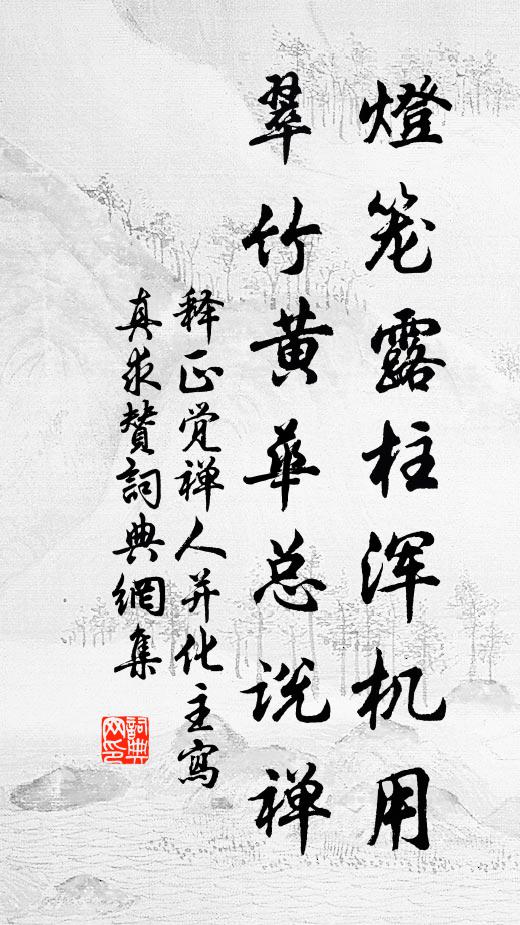 燈笼露柱浑机用
翠竹黄华总说禅
释正觉禅人并化主寫
真求赞詞典網集
詞典网印